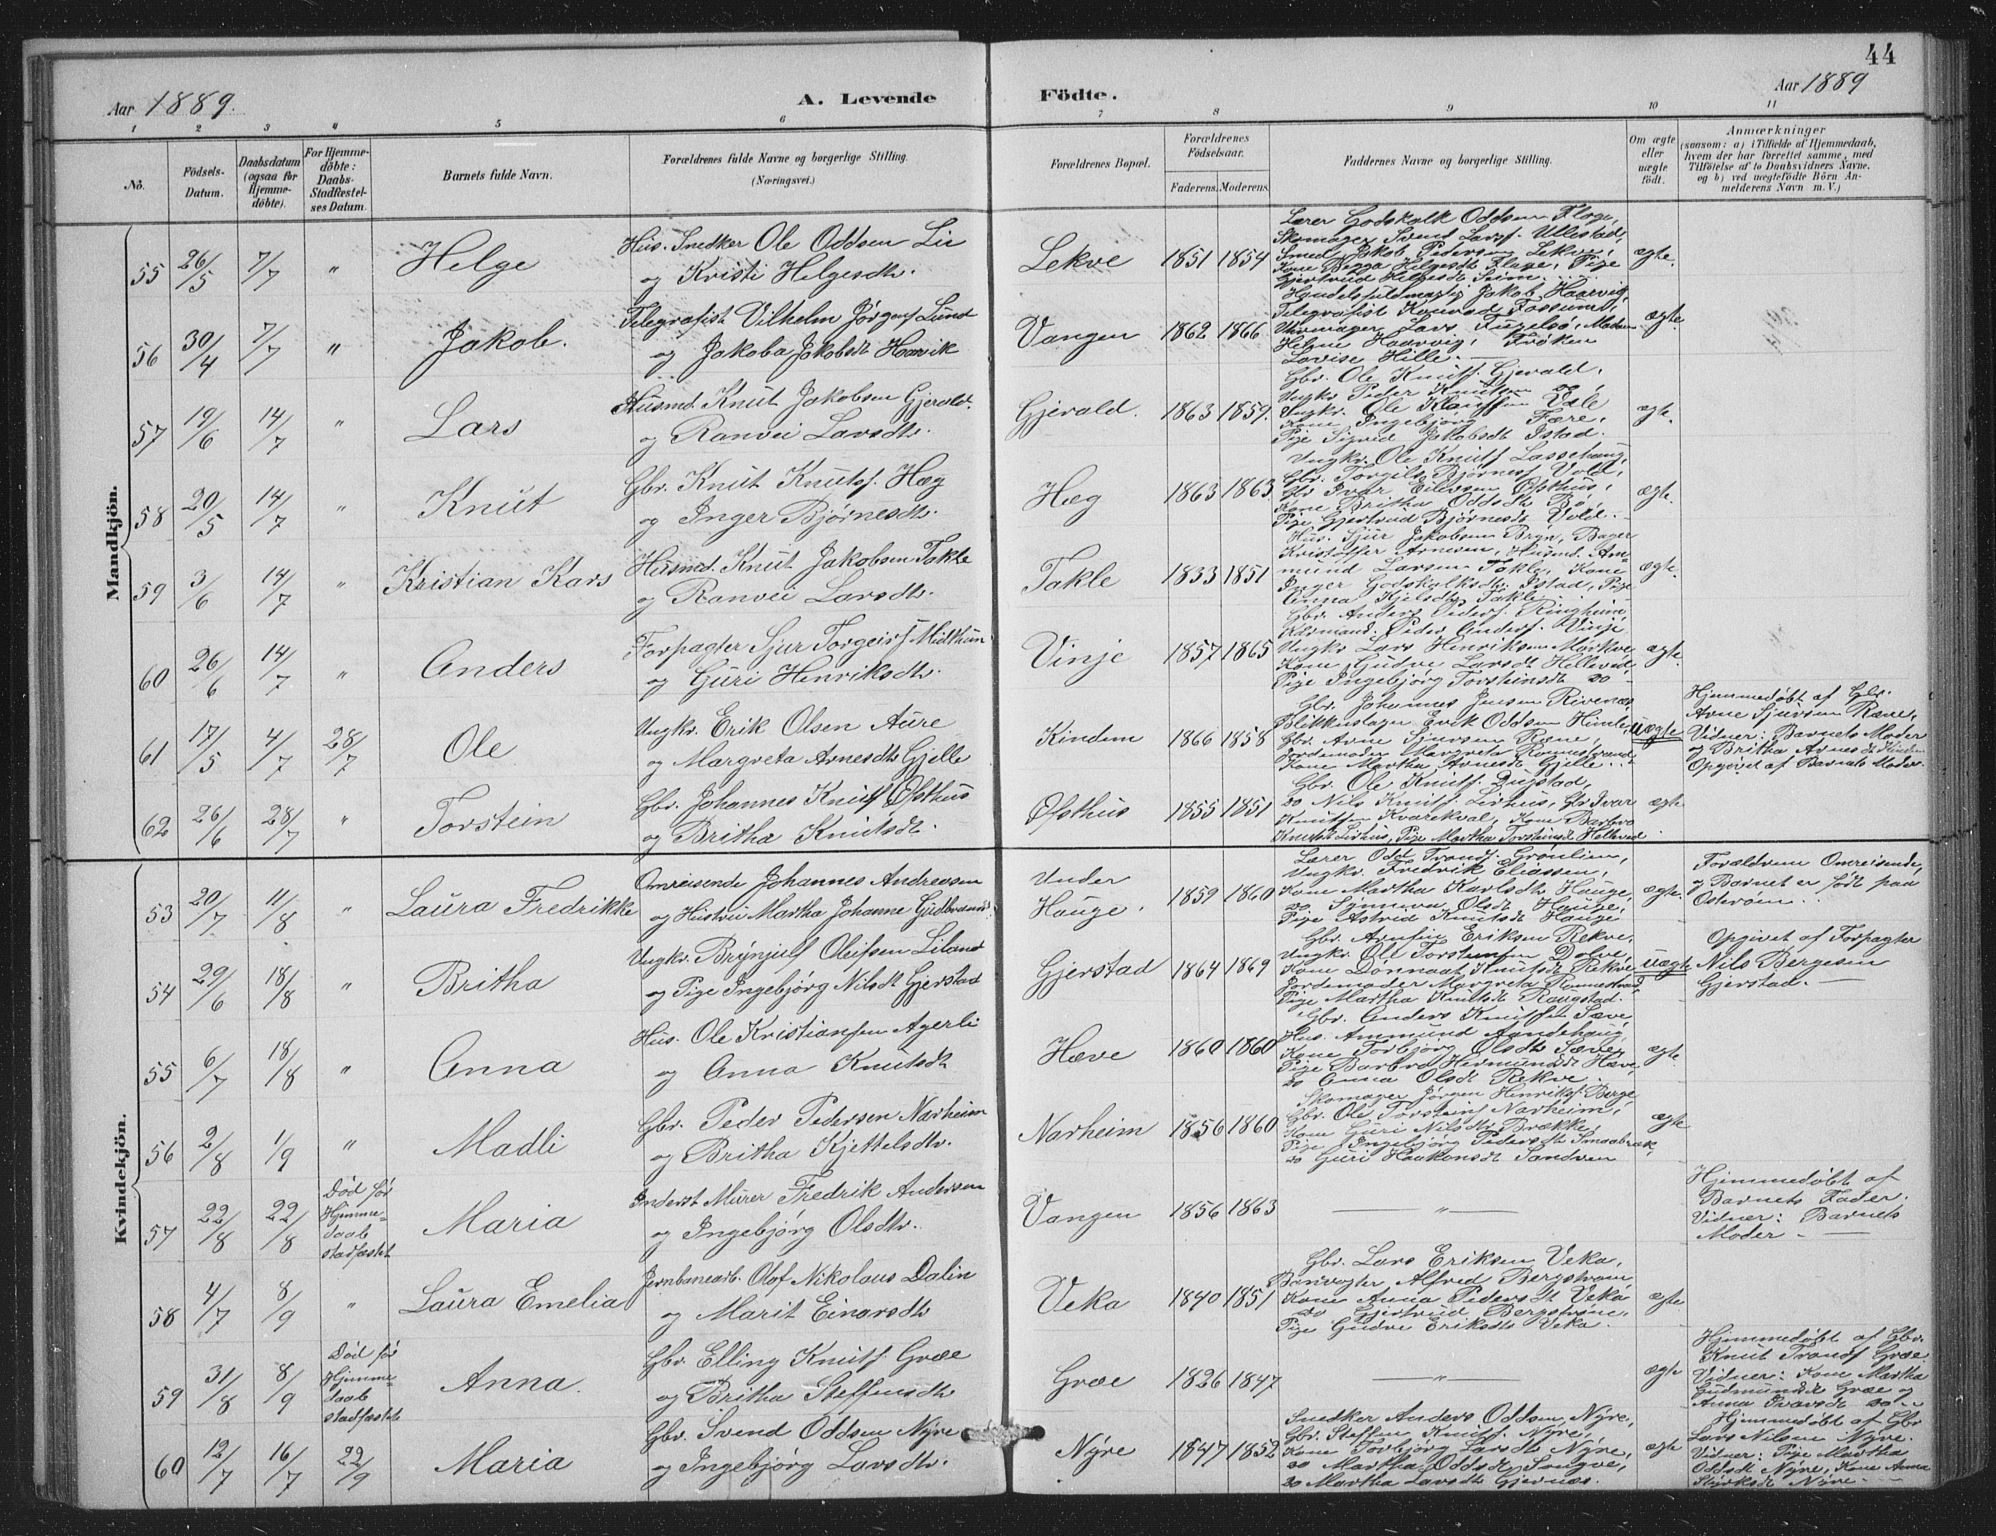 44
Aar 1889.
A. Levende
Födte.
Aar 1889
1 2 3 4 5 6 7 8 9 10 11
No.
Födsels-
Datum.
Daabsdatum
(ogsaa for
Hjemme-
döbte).
For Hjemme-
döbte:
Daabs-
Stadfæstel-
ses Datum.
Barnets fulde Navn.
Forældrenes fulde Navne og borgerlige Stilling.
(Næringsvei.)
Forældrenes Bopæl.
Forældrenes
Födselsaar.
Faderens. Moderens.
Faddernes Navne og borgerlige Stilling.
Om ægte
eller
uægte
födt.
Anmærkninger
(saasom: a) i Tilfælde af Hjemmedaab,
hvem der har forrettet samme, med
Tilföielse af to Daabsvidners Navne.
og b) ved uægtefödte Börn An-
melderens Navn m. V.)
Mandkjön.
55 26/5 7/7 " Helge
Hus. Snedker Ole Oddsen Lir
og Kristi Helgesdtr.
Lekve 1851 1854
Lærer Godskalk Oddsen Flage,
Skomager Svend Larsf. Ullestad,
Smed Jakob Pedersen Lekve,
Kone Brygga Helgesdt Flage, Pige
Gjertrud Helgesdt Seim.
ægte.
56 30/4 7/7 " Jakob.
Telegrafist Vilhelm Jørgens Lund
og Jakoba Jakobsdt Haarvik
Vangen 1862 1866
Handelsfuldmægtig Jakob Haarvig,
Telegrafist Konrad Fossum,
Uhrmager Lars Fugelsø, Madam
Helene Haarvig, Frøken
Lovise Hille.
ægte
57 19/6 14/7 " Lars
Husmd. Knut Jakobsen Gjerald.
og Ranvei Larsdtr.
Gjerald. 1863 1859.
Gbr. Ole Knutf. Gjerald,
Ungkr. Peder Knutsen do
Ungkr. Ole Knutsen Væle
Kone Ingebjørg Fære,
Pige Sigrid Jakobsdt Istad.
ægte.
58 20/5 14/7 " Knut
Gbr. Knut Knutsf. Hæg
og Inger Bjørnesdtr.
Hæg 1863 1863
Ungkr. Ole Knutf Lassehaug,
Gbr. Torgils Bjørnesf Vold,
Gbr Ivar Eilevsen Ofsthus,
Kone Britha Oddsdt Bø,
Pige Gjertrud Bjørnesdt Vold.
ægte.
59 3/6 14/7 " Kristian Kars
Husmd. Knut Jakobsen Takle
og Ranvei Larsdtr.
Takle 1833 1851
Hus. Sjur Jakobsen Bryn, Bager
Kristoffer Arnesen, Husmd. Am-
mund Larsen Takle, Kone
Inger Godskalksdtr Istad, Pige
Anna Kjelsdt Takle.
ægte.
60 26/6 14/7 " Anders
Forpagter Sjur Torgeirs Midthun
og Guri Henriksdtr.
Vinje 1857 1865
Gbr. Anders Peders. Ringheim,
Peder Andersf. Vinje
Ungkr Lars Henriksen Mørkve,
Kone Gudve Larsdt Helleved
Pige Ingebjørg Torsteinsdt do
ægte.
61 17/5 4/7 28/7 Ole
Ungkr. Erik Olsen Aure
og Margreta Arnesdtr Gjelle
Kindem 1866 1858
Gbr. Johannes Jensen Rivenæs,
Blikkenslager Erik Oddsen Himle,
Gbr. Arne Sjursen Ræne,
Jordemoder Margreta Rønnestrand,
Kone Martha Arnesdt Gjelle.
uægte
Hjemmedøbt af Gbr.
Arne Sjursen Ræve,
Vidner: Barnets Moder
og Britha Arnesdt Kindem
Opgivet af Barnets Moder.
62 26/6 28/7 " Torstein
Gbr. Johannes Knutf Ofsthus
og Britha Knutsdt.
Ofsthus 1855 1851
Gbr. Ole Knutf. Dugstad,
do Nils Knutf. Lirhus, Gbr Ivar
Knutsen Kvarekval, Kone Barbro
Knutsdt Lirhus, Pige Martha Torsteinsdt Helleved
ægte
Kvindekjön.
53 20/7 11/8 " Laura Fredrikke
Omreisende Johannes Andreasen
og Histrui Martha Johanne Gudbrands
Under
Hauge. 1859 1860
Lærer Odd Trondf. Grønlien,
Ungkr. Fredrik Eliassen,
Kone Martha Karlsdtr Hauge,
do Synneva Olsdt Hauge,
Pige Astrid Knutsdt Hauge
ægte.
Forældrene Omreisende,
og Barnet er født paa
Osterøen.
54 29/6 18/8 " Britha
Ungkr. Brynjulf Oleifsen Liland
og Pige Ingebjørg Nilsdt Gjerstad
Gjerstad 1864 1869
Gbr. Arnfin Eriksen Rekve,
Ungkr. Ole Torsteinsen Dolve,
Kone Donnaat Knutsdt Rekve
Jordemoder Margreta Rønnestrand,
Pige Martha Knutsdt Raugstad.
uægte
Opgivet af Forpagter
Nils Bergesen
Gjerstad.
55 6/7 18/8 " Anna
Hus. Ole Kristiansen Agerli
og Anna Knutsdt.
Hæve 1860 1860
Gbr. Anders Knutsen Sæve,
Hus. Ammund Aandehaug,
Kone Torbjørg Olsdtr Sæve,
Pige Barbro Hermundsdt Hæve
do Anna Olsdt Rekve.
ægte
56 2/8 1/9 " Madli
Gbr. Peder Pedersen Narheim
og Britha Kjettelsdtr.
Narheim 1856 1860
Skomager Jørgen Henriksf. Berge,
Gbr. Ole Torsteinf Narheim,
Kone Guri Nilsdtr Brække,
Pige Ingebjørg Pedersdt Smaabræk,
do Guri Haakonsdt Sandven
ægte
57 22/8 22/8
Død før
Hjemme-
daab
stadfæstet
Maria
Inderst Murer Fredrik Andersen
og Ingebjørg Olsdtr.
Vangen 1856 1863 "
Hjemmedøbt af
Barnets Fader.
Vidner: Barnets
Moder.
58 4/7 8/9 " Laura Emelia
Jernbanearb. Olof Nikolaus Dalin
og Marit Einarsdtr
Veka 1840 1851
Gbr. Lars Eriksen Veka,
Banvogter Alfred Bergstrøm,
Kone Anna Pedersdt Veka
do Gjertrud Bergstrøm,
Pige Gudve Eriksdtr Veka.
ægte
59 31/8 8/9
Død før
Hjemme-
daab
stadfæstet
Anna.
Gbr. Elling Knutf. Græe
og Britha Steffensdtr
Græe 1826 1847 "
ægte
Hjemmedøbt af Gbr.
Knut Trondf Græe.
Vidner: Kone Martha
Gudmundsdt Græe og
Anna Ivarsdt do
60 12/7 16/7 22/9 Maria
Gbr. Svend Oddsen Nyre
og Ingebjørg Larsdtr.
Nyre 1847 1852
Snedker Anders Oddsen Nyre,
Gbr. Steffen Knutf. Nyre,
Kone Torbjørg Larsdtr Nyre,
do Martha Oddsdt Sungve,
do Martha Larsdt Gjernæs.
ægte
Hjemmedøbt af Gbr
Lars Nilsen Nyre.
Vidner: Pige Martha
Oddsdt Nyre, Kone Anna
Styrksdt Nyre